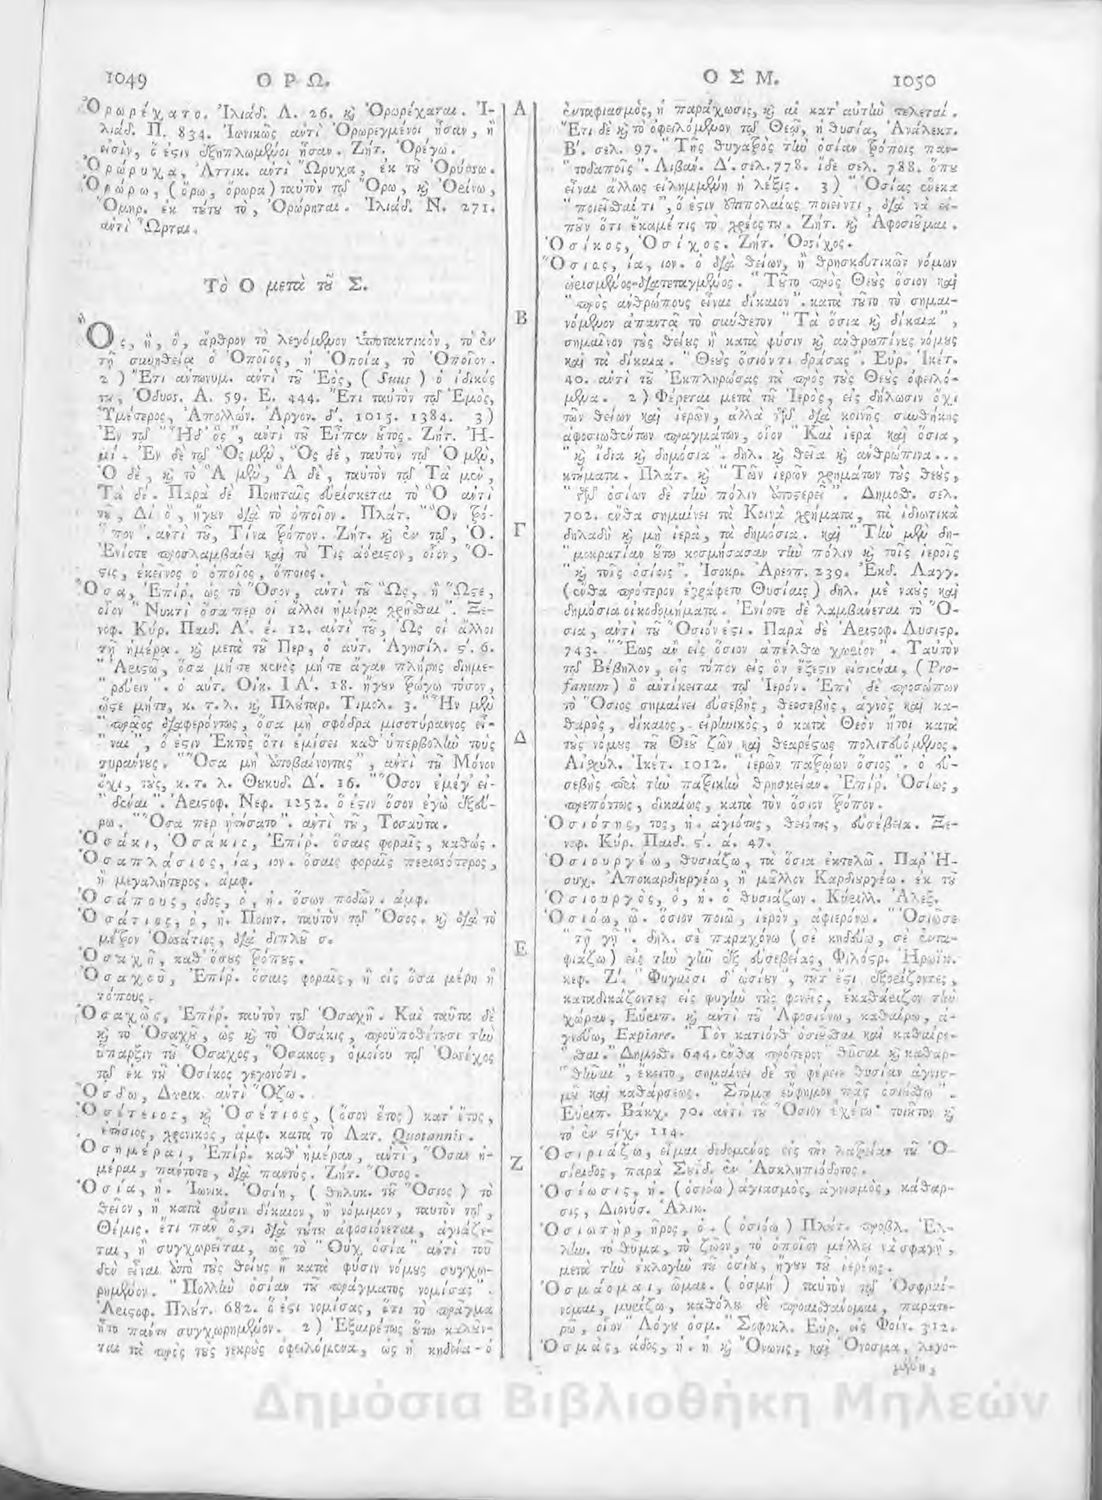 1049 ΟΡΩ.
Ὀρωρέχατο. Ἰλιάδ. Λ. 26. ϗ Ὀρωρέχαται. Ἰ-
λιάδ. Π. 834. Ἰωνικῶς αὐτὶ Ὀρωρεγμένοι ἦσαν, ἢ
εἰσὶν, ὅ ἐςιν ἐξηπλωμένοι ἦσαν. Ζήτ. Ὀρέγω.
Ὀρώρυχα, Ἀττικ. ἀντὶ Ὤρυχα, ἐκ τȣ Ὀρύσσω.
Ὀρώρω, (ὄρω, ὄρωρα) ταὐτὸν τῷ Ὄρω, ϗ Ὀείνω,
Ὁμηρ. ἐκ τȣτȣ τὸ, Ὀρώρηται. Ἰλιάδ. Ν. 271.
ἀντὶ Ὦρται.
Τὸ Ο μετὰ τȣ Σ.
Ὃς, ἣ, ὃ, ἄρθρον τὸ λεγόμενον ὑποτακτικὸν, τὸ ἐν
τῇ συνηθείᾳ ὁ Ὁποῖος, ἡ Ὁποία, τὸ Ὁποῖον.
2) Ἔτι ἀντωνυμ. ἀντὶ τȣ Ἑὸς, (Suus) ὁ ἰδικός
τȣ, Ὀδυσ. Α. 59. Ε. 444. Ἔτι ταὐτὸν τῷ Ἐμὸς,
Ὑμέτερος, Ἀπολλών. Ἀργον. δ'. 1015. 1384. 3)
Ἐν τῷ "Ἦ δ' ὃς", ἀντὶ τȣ Εἶπεν ȣτος. Ζήτ. Ἠ-
μί. Ἐν δὲ τῷ Ὃς μὲν, Ὃς δὲ, ταὐτὸν τῷ Ὁ μὲν,
Ὁ δὲ, ϗ τὸ Ἃ μὲν, Ἃ δὲ, ταὐτὸν τῷ Τὰ μὲν,
Τὰ δέ. Παρὰ δὲ Ποιηταῖς εὑρίσκεται τὸ Ὃ ἀντὶ
τȣ, Δι' ὃ, ἤγȣν διὰ τὸ ὁποῖον. Πλάτ. "Ὃν τρό-
"πον". ἀντὶ τȣ, Τίνα τρόπον. Ζήτ. ϗ ἐν τῷ, Ὁ.
Ἐνίοτε προσλαμβάνει καὶ τὸ Τὶς ἀόριςον, οἷον, Ὅ-
ςις, ἐκεῖνος ὁ ὁποῖος, ὅποιος.
Ὅσα, Ἐπίρ. ὡς τὸ Ὅσον, ἀντὶ τȣ Ὡς, ἢ Ὥςε,
οἷον "Νυκτὶ ὅσα περ οἱ ἄλλοι ἡμέρᾳ χρῆσθαι". Ξε-
νοφ. Κύρ. Παιδ. Α'. έ. 12. ἀντὶ τȣ, Ὡς οἱ ἄλλοι
τῇ ἡμέρᾳ. ϗ μετὰ τȣ Περ, ὁ αὐτ. Ἀγησίλ. ς'. 6.
"Ἀριςῶ, ὅσα μήτε κενὸς μήτε ἄγαν πλήρης διημε-
"ρεύειν". ὁ αὐτ. Οἰκ. ΙΑ'. 18. ἤγȣν τρώγω τόσον,
ὥςε μήτε, κ. τ. λ. ϗ Πλȣταρ. Τιμολ. 3. "Ἦν μὲν
"πρᾷος διαφερόντως, ὅσα μὴ σφόδρα μισοτύραννος εἶ-
"ναι", ὅ ἐςιν Ἐκτὸς ὅτι ἐμίσει καθ' ὑπερβολὴν τοὺς
τυράννȣς. "Ὅσα μὴ ἀποβαίνοντας", ἀντὶ τȣ Μόνον
ὄχι, τȣς, κ. τ. λ. Θȣκυδ. Δ'. 16. "Ὅσον ἐμέγ' εἰ-
"δέναι". Ἀριςοφ. Νεφ. 1252. ὅ ἐςιν ὅσον ἐγὼ ἐξεύ-
ρω. "Ὅσα περ ᾐτήσατο". ἀντὶ τȣ, Τοσαῦτα.
Ὁσάκι, Ὁσάκις, Ἐπίρ. ὅσαις φοραῖς, καθώς.
Ὁσαπλάσιος, ία, ιον. ὅσαις φοραῖς περισσότερος,
ἢ μεγαλήτερος. ἀμφ.
Ὁσάπους, οδος, ὁ, ἡ. ὅσων ποδῶν. ἀμφ.
Ὁσάτιος, ὁ, ἡ. Ποιητ. ταὐτὸν τῷ Ὅσος. ϗ διὰ τὸ
μέτρον Ὁσσάτιος, διὰ διπλȣ σ.
Ὁσαχῆ, καθ' ὅσȣς τρόπȣς.
Ὁσαχοῦ, Ἐπίρ. ὅσαις φοραῖς, ἢ εἰς ὅσα μέρη ἢ
τόπους.
Ὁσαχῶς, Ἐπίρ. ταὐτὸν τῷ Ὁσαχῆ. Καὶ ταῦτα δὲ
ϗ τὸ Ὁσαχȣ, ὡς ϗ τὸ Ὁσάκις, προϋποθέτȣσι τὴν
ὕπαρξιν τȣ Ὅσαχος, Ὅσακος, ὁμοίου τῷ Ὁσσίχος
τῷ ἐκ τȣ Ὁσίκος γεγονότι.
Ὄσδω, Δωρικ. ἀντὶ Ὄζω.
Ὁσέτειος, ϗ Ὁσέτιος, (ὅσον ἔτος) κατ' ἔτος,
ἐτήσιος, χρονικὸς, ἀμφ. κατὰ τὸ Λατ. Quotannis.
Ὁσημέραι, Ἐπίρ. καθ' ἡμέραν, ἀντὶ, Ὅσαι ἡ-
μέραι, πάντοτε, διὰ παντός. Ζήτ. Ὅσος.
Ὁσία, ἡ. Ἰωνικ. Ὁσίη, (θηλυκ. τȣ Ὅσιος) τὸ
θεῖον, ἢ κατὰ φύσιν δίκαιον, ἢ νόμιμον, ταὐτὸν τῷ,
Θέμις. ἔτι πᾶν ὅ,τι διὰ τȣτȣ ἀφοσιόνεται, ἁγιάζε-
ται, ἢ συγχωρεῖται, ὡς τὸ "Οὐχ ὁσία" ἀντὶ τοῦ
δὲν εἶναι ἀπὸ τȣς θείȣς ἢ κατὰ φύσιν νόμȣς συγχω-
ρημένον. "Πολλὴν ὁσίαν τȣ πράγματος νομίσας".
Ἀριςοφ. Πλȣτ. 682. ὅ ἐςι νομίσας, ὅτι τὸ πρᾶγμα
ἦτο πάντη συγχωρημένον. 2) Ἐξαιρέτως ȣτω καλȣν-
ται τὰ πρὸς τȣς νεκρȣς ὀφειλόμενα, ὡς ἡ κηδεία-ὁ
Α
Β
Γ
Δ
Ε
Ζ
ΟΣΜ. 1050
ἐνταφιασμὸς, ἡ παράχωσις, ϗ αἱ κατ' αὐτὴν τελεταί.
Ἔτι δὲ ϗ τὸ ὀφειλόμενον τῷ Θεῷ, ἡ θυσία, Ἀνάλεκτ.
Β'. σελ. 97. "Τῆς θυγατρὸς τὴν ὁσίαν τρόποις παν-
"τοδαποῖς". Λιβαν. Δ'. σελ. 778. ἰδὲ σελ. 788. ὅπȣ
εἶναι ἄλλως εἰλημμένη ἡ λέξις. 3) "Ὁσίας ἕνεκα
"ποιεῖσθαί τι", ὅ ἐςιν ἐπιπολαίως ποιεῖν τι, διὰ νὰ εἰ-
πῇν ὅτι ἔκαμέ τις τὸ χρέος τȣ. Ζήτ. ϗ Ἀφοσιȣμαι.
Ὁσίκος, Ὁσίχος. Ζήτ. Ὁσσίχος.
Ὅσιος, ία, ιον. ὁ διὰ θείων, ἢ θρησκευτικῶν νόμων
ὡρισμένος-διατεταγμένος. "Τȣτο πρὸς Θεȣς ὅσιον καὶ
"πρὸς ἀνθρώπους εἶναι δίκαιον". κατὰ τȣτο τὸ σημαι-
νόμενον ἀπαντᾷ τὸ σύνθετον "Τὰ ὅσια ϗ δίκαια",
σημαῖνον τȣς θείȣς ἢ κατὰ φύσιν ϗ ἀνθρωπίνȣς νόμȣς
καὶ τὰ δίκαια. "Θεȣς ὅσιόν τι δράσας". Εὐρ. Ἱκέτ.
40. ἀντὶ τȣ Ἐκπληρώσας τὰ πρὸς τȣς Θεȣς ὀφειλό-
μενα. 2) Φέρεται μετὰ τȣ Ἱερὸς, εἰς δήλωσιν ὄχι
τῶν θείων καὶ ἱερῶν, ἀλλὰ τῶν διὰ κοινῆς συνθήκης
ἀφοσιωθέντων πραγμάτων, οἷον "Καὶ ἱερὰ καὶ ὅσια,
"ϗ ἴδια ϗ δημόσια". δηλ. ϗ θεῖα ϗ ἀνθρώπινα...
κτήματα. Πλάτ. ϗ "Τῶν ἱερῶν χρημάτων τȣς θεȣς,
"τῶν ὁσίων δὲ τὴν πόλιν ἀποςερεῖ". Δημοσθ. σελ.
702. ἔνθα σημαίνει τὰ Κοινὰ χρήματα, τὰ ἰδιωτικὰ
δηλαδὴ ϗ μὴ ἱερὰ, τὰ δημόσια. καὶ "Τὴν μὲν δη-
"μοκρατίαν ȣτω κοσμήσασαν τὴν πόλιν ϗ τοῖς ἱεροῖς
"ϗ τοῖς ὁσίοις". Ἰσοκρ. Ἀρεοπ. 239. Ἐκδ. Λαγγ.
(ἔνθα πρότερον ἐγράφετο Θυσίαις) δηλ. μὲ ναȣς καὶ
δημόσια οἰκοδομήματα. Ἐνίοτε δὲ λαμβάνεται τὸ Ὅ-
σια, ἀντὶ τȣ Ὅσιόν ἐςι. Παρὰ δὲ Ἀριςοφ. Λυσιςρ.
743. "Ἕως ἂν εἰς ὅσιον ἀπέλθω χωρίον". Ταὐτὸν
τῷ Βέβηλον, εἰς τόπον εἰς ὃν ἔξεςιν εἰσιέναι, (Pro-
fanum) ὃ ἀντίκειται τῷ Ἱερόν. Ἐπὶ δὲ προσώπων
τὸ Ὅσιος σημαίνει εὐσεβὴς, θεοσεβὴς, ἁγνὸς καὶ κα-
θαρὸς, δίκαιος, εἰρηνικὸς, ὁ κατὰ Θεὸν ἤτοι κατὰ
τȣς νόμȣς τȣ Θεȣ ζῶν καὶ θεαρέςως πολιτευόμενος.
Αἰσχύλ. Ἱκετ. 1012. "ἱερῶν πατρῴων ὅσιος". ὁ εὐ-
σεβὴς περὶ τὴν πατρικὴν θρησκείαν. Ἐπίρ. Ὁσίως,
πρεπόντως, δικαίως, κατὰ τὸν ὅσιον τρόπον.
Ὁσιότης, τος, ἡ. ἁγιότης, θειότης, εὐσέβεια. Ξε-
νοφ. Κύρ. Παιδ. ς'. ά. 47.
Ὁσιουργέω, θυσιάζω, τὰ ὅσια ἐκτελῶ. Παρ' Ἡ-
συχ. Ἀποκαρδιȣργέω, ἢ μᾶλλον Καρδιȣργέω. ἐκ τȣ
Ὁσιουργὸς, ὁ, ἡ. ὁ θυσιάζων. Κύριλλ. Ἀλεξ.
Ὁσιόω, ῶ. ὅσιον ποιῶ, ἱερὸν, ἀφιερόνω. "Ὁσίωσε
"τῇ γῇ". δηλ. σὲ παραχόνω (σὲ κηδεύω, σὲ ἐντα-
φιάζω) εἰς τὴν γῆν ἐξ εὐσεβείας, Φιλόςρ. Ἡρωϊκ.
κεφ. Ζ'. "Φυγαῖσι δ' ὡσίȣν", τȣτ' ἔςι ἐξορίζοντες,
καταδικάζοντες εἰς φυγὴν τȣς φονεῖς, ἐκαθάριζον τὴν
χώραν, Εὐριπ. ϗ ἀντὶ τȣ Ἀφοσιόνω, καθαίρω, ἁ-
γνεύω, Expiare. "Τὸν κατιόνθ' ὁσιȣσθαι καὶ καθαίρε-
"σθαι." Δημοσθ. 644. ἔνθα πρότερον Θῦσαι ϗ καθαρ-
"θῆναι", ἔκειτο, σημαίνει δὲ τὸ φέρειν θυσίαν ἁγνισ-
μȣ καὶ καθάρσεως. "Στόμα εὔφημον πᾶς ὁσιȣσθω".
Εὐριπ. Βάκχ. 70. ἀντὶ τȣ Ὅσιον ἐχέτω· τοιȣτον ϗ
τὸ ἐν ςίχ. 114.
Ὁσιριάζω, εἶμαι δεδομένος εἰς τὴν λατρείαν τȣ Ὀ-
σίριδος, παρὰ Σȣΐδ. ἐν Ἀσκληπιόδοτος.
Ὁσίωσις, ἡ. (ὁσιόω) ἁγιασμὸς, ἁγνισμὸς, κάθαρ-
σις, Διονύσ. Ἁλικ.
Ὁσιωτὴρ, ῆρος, ὁ. (ὁσιόω) Πλȣτ. προβλ. Ἑλ-
λην. τὸ θῦμα, τὸ ζῶον, τὸ ὁποῖον μέλλει νὰ σφαγῇ,
μετὰ τὴν ἐκλογὴν τȣ ὁσίȣ, ἤγȣν τȣ ἱερέως.
Ὀσμάομαι, ῶμαι. (ὀσμὴ) ταὐτὸν τῷ Ὀσφραί-
νομαι, μυρίζω, καθόλȣ δὲ προαισθάνομαι, παρατη-
ρῶ, οἷον "Λόγȣ ὀσμ." Σοφοκλ. Εὐρ. εἰς Φοίν. 312.
Ὀσμὰς, άδος, ἡ. ἡ ϗ Ὄνωνις, καὶ Ὄνοσμα, λεγο-
μένη,
Δημόσια Βιβλιοθήκη Μηλεών